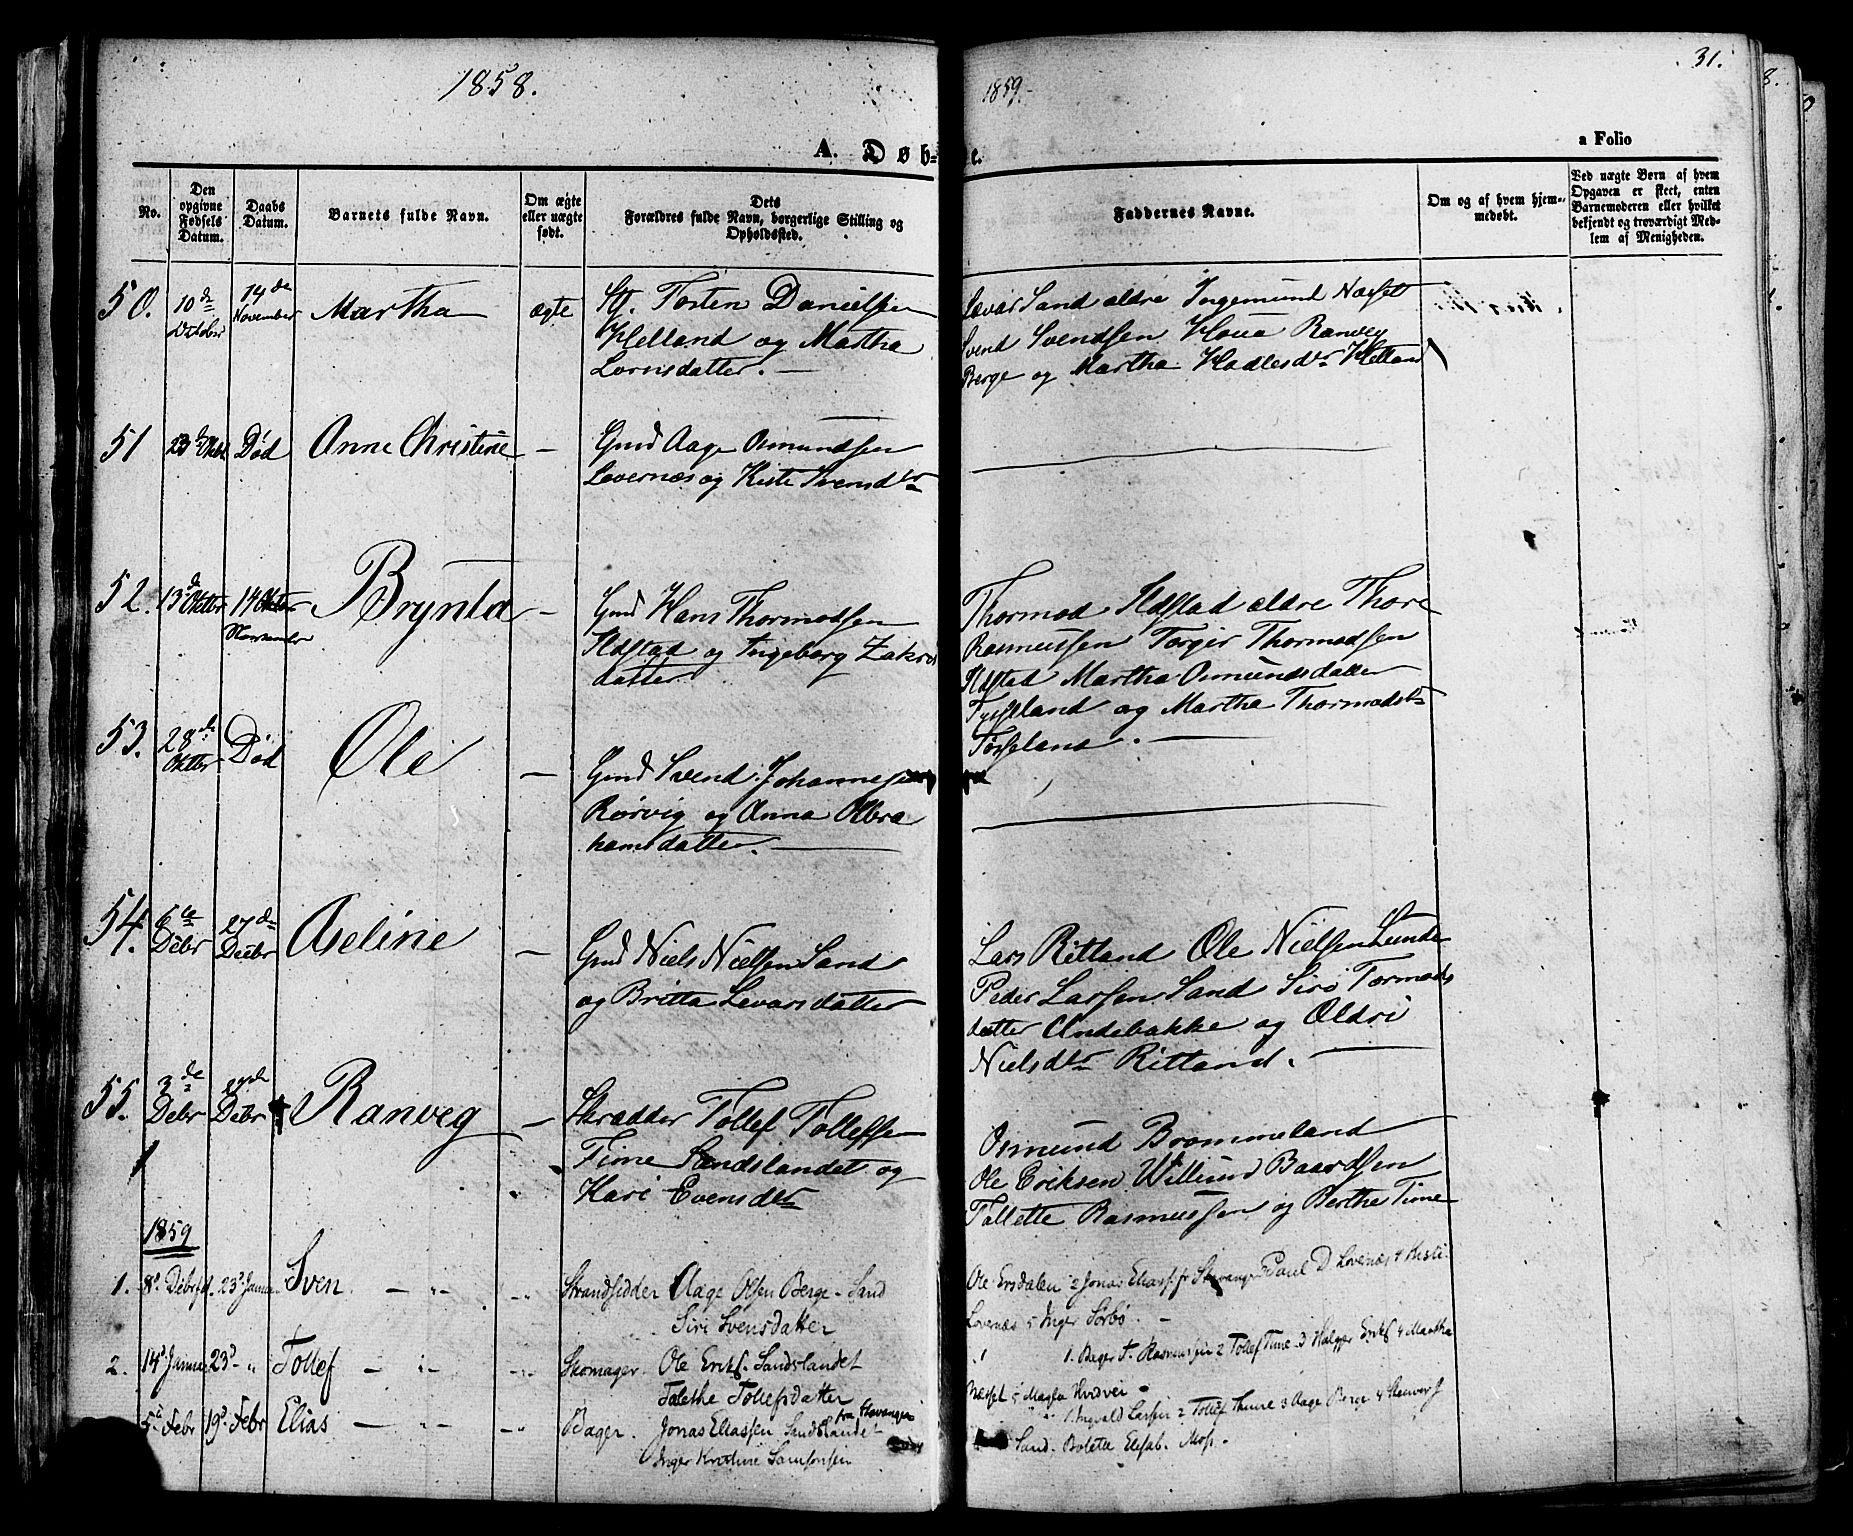 1858.
1859.
31.
A. Døb-
e.
a Folio
No.
Den opgivne Fødsels Datum.
Daabs Datum.
Barnets fulde Navn.
Om ægte eller uægte født.
Dets Forældres fulde Navn, borgerlige Stilling og Opholdssted.
Faddernes Navne.
Om og af hvem hjemmedøbt.
Ved uægte Børn af hvem Opgaven er skeet, enten Barnemoderen eller hvilket bekjendt og troværdigt Medlem af Menigheden.
50. 10de Octobr 14de November Martha ægte Torsten Danielsen
Helland og Martha
datter. —
Sand ældre Ingemund Næsset
Svend Svendsen Houa Ranveg
Berge og Martha Hadlesdr Helland
51 23de Oktbr Død Anne Christine — Gmd Aage Osmundsen
Lovernæs og Kisti Svensdtr
52. 13de Oktbr 14 Oktbr Brynla — Gmd Hans Thormodsen
November
Adstad og Ingeborg
datter.
Thormod Adstad ældre Thore
Rasmussen Torgir Thormodsen
Adstad Martha Osmundsdatter
Tysseland og Martha Thormodsdtr
Tysseland. —
53. 28de Oktbr Død Ole — Gmd Svend Johannesen
Rørvig og Anna Abra
hamsdatter. —
54. 6te Debr 27de Debr Aseline — Gmd Niels Nielsen Sand
og Britta Levarsdatter
Lars Ritland Ole Nielsen Lunde
Peder Larsen Sand Siri Tormods
datter Andebakke og Aldri
Nielsdtr Ritland. —
55. 3de Debr 27de Debr Ranveg — Skrædder Tollef Tollefsen
Time Sandslandet og
Kari Evensdtr
Osmund Brommeland
Ole Eriksen Willund Baardsen
Tollette Rasmussen og Berthe Time
1859
1. 8d Debr 23d Januar Sven. — " — " Strandsidder Aage Olsen Berge - Sand
Siri Svensdatter
Ole Ersdalen 2 Jonas Eliass. fr Stavanger Paul D Lovernæs 4 Kisti
Lovernæs 5 Inger Sørbø. —
2. 14d Januar 23d - " Tollef — " — " Skomager. Ole Eriks. Sandslandet
Talethe Tollefsdatter
1. Bager T. Rasmussen 2 Tollef Time 3 Holger Eriks 4 Martha
Næsset 5 Magla Hvidvei
5te Febr 19d Febr Elias — " — " Bager. Jonas Eliassen Sandslandet fra Stavanger
Inger Kristine Samsonsen
Ingvald Larsen 2 Tollef Thime 3 Aage Berge 4
Sand. Bolette Elisab. Moss.